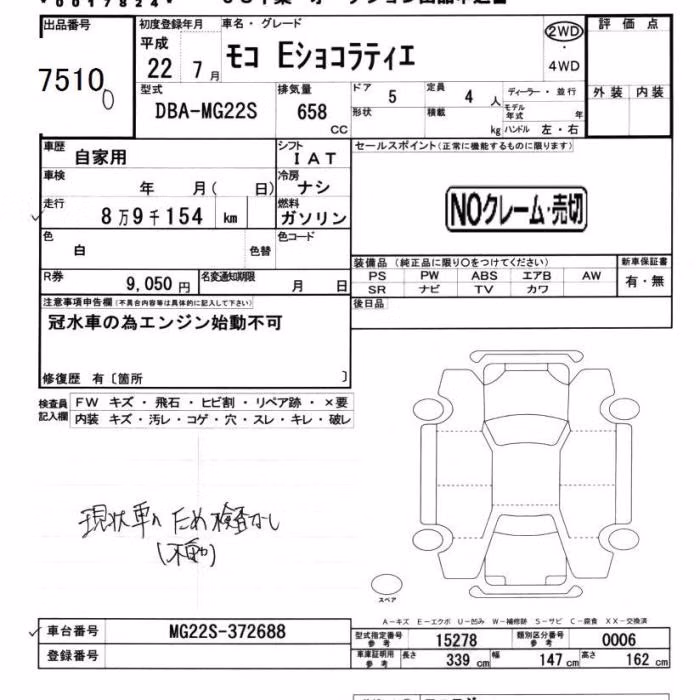 0017824
出品番号 初度登録年月 車名・グレード 評価点
7510 平成 22年 7月 モコ Eショコラティエ 2WD・4WD
型式 DBA-MG22S 排気量 658 CC ドア 5 定員 4人 ディーラー・並行 外装 内装
形状 積載 kg モデル年式 年 ハンドル 左・右
車歴 自家用 シフト IAT セールスポイント(正常に機能するものに限ります)
車検 年 月( 日) 冷房 ナシ
走行 8万9千154 km 燃料 ガソリン NOクレーム・売切
色 白 色替 色コード
装備品 (純正品に限り○をつけてください) 新車保証書
PS PW ABS エアB AW 有・無
SR ナビ TV カワ
R券 9,050円 名変通知期限 月 日
後日品
注意事項申告欄(不具合内容等は具体的に記入して下さい)
冠水車の為エンジン始動不可
修復歴 有〔箇所 〕
検査員記入欄 FW キズ・飛石・ヒビ割・リペア跡・×要
内装 キズ・汚レ・コゲ・穴・スレ・キレ・破レ
現状車のため検査なし
(不動)
スペア
A-キズ E-エクボ U-凹み W-補修跡 S-サビ C-腐食 XX-交換済
車台番号 MG22S-372688
型式指定番号 参考 15278 類別区分番号 参考 0006
登録番号
車庫証明用 参考 長さ 339 cm 幅 147 cm 高さ 162 cm